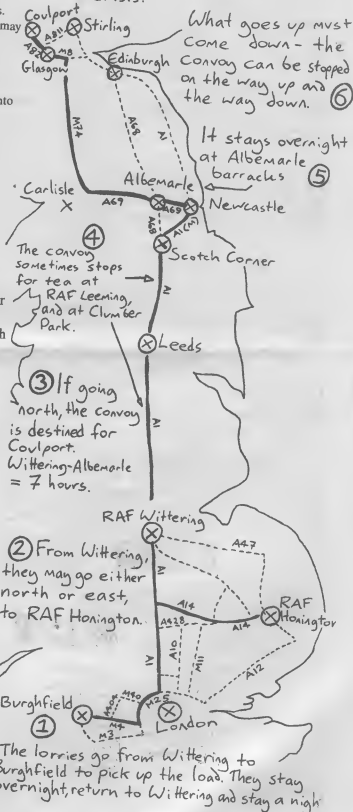 s.
may
Coulport
Stirling
A811
A82
M8
Glasgow
Edinburgh
What goes up must
come down - the
convoy can be stopped
on the way up and
the way down. ⑥
nto
M74
A68
A1
It stays overnight
at Albemarle
barracks ⑤
Albemarle
Carlisle
A69
A69
Newcastle
A68
A1(M)
④
The convoy
sometimes stops
for tea at
RAF Leeming,
and at Clumber
Park.
Scotch Corner
A1
r
h
Leeds
③ If going
north, the convoy
is destined for
Coulport.
Wittering-Albemarle
= 7 hours.
A1
RAF Wittering
② From Wittering,
they may go either
north or east,
to RAF Honington.
A1
A47
A14
A14
RAF
Honington
A428
A10
M11
A12
A1
Burghfield
①
A404
M40
M25
M4
M3
London
The lorries go from Wittering to
Burghfield to pick up the load. They stay
overnight, return to Wittering and stay a nigh